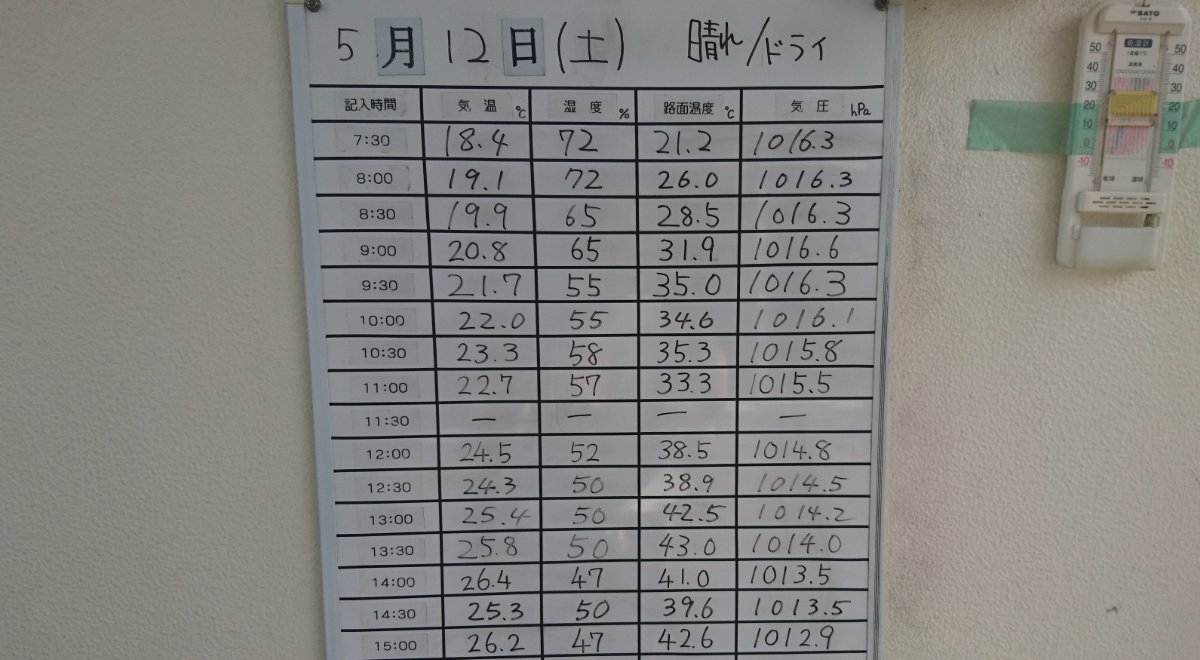 5月12日(土) 晴れ/ドライ
記入時間 気温 ℃ 湿度 % 路面温度 ℃ 気圧 hPa
7:30 18.4 72 21.2 1016.3
8:00 19.1 72 26.0 1016.3
8:30 19.9 65 28.5 1016.3
9:00 20.8 65 31.9 1016.6
9:30 21.7 55 35.0 1016.3
10:00 22.0 55 34.6 1016.1
10:30 23.3 58 35.3 1015.8
11:00 22.7 57 33.3 1015.5
11:30 — — — —
12:00 24.5 52 38.5 1014.8
12:30 24.3 50 38.9 1014.5
13:00 25.4 50 42.5 1014.2
13:30 25.8 50 43.0 1014.0
14:00 26.4 47 41.0 1013.5
14:30 25.3 50 39.6 1013.5
15:00 26.2 47 42.6 1012.9
SATO
乾湿計
50 50
40 40
30 30
20 20
10 10
0 0
-10 -10
乾球 湿球